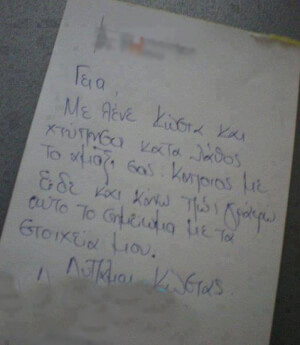 Γεια,
Με λένε Κώστα και
χτύπησα κατά λάθος
το αμάξι σας. Κάποιος με
είδε και κάνω πως γράφω
αυτό το σημείωμα με τα
στοιχεία μου.
Λυπάμαι Κώστας